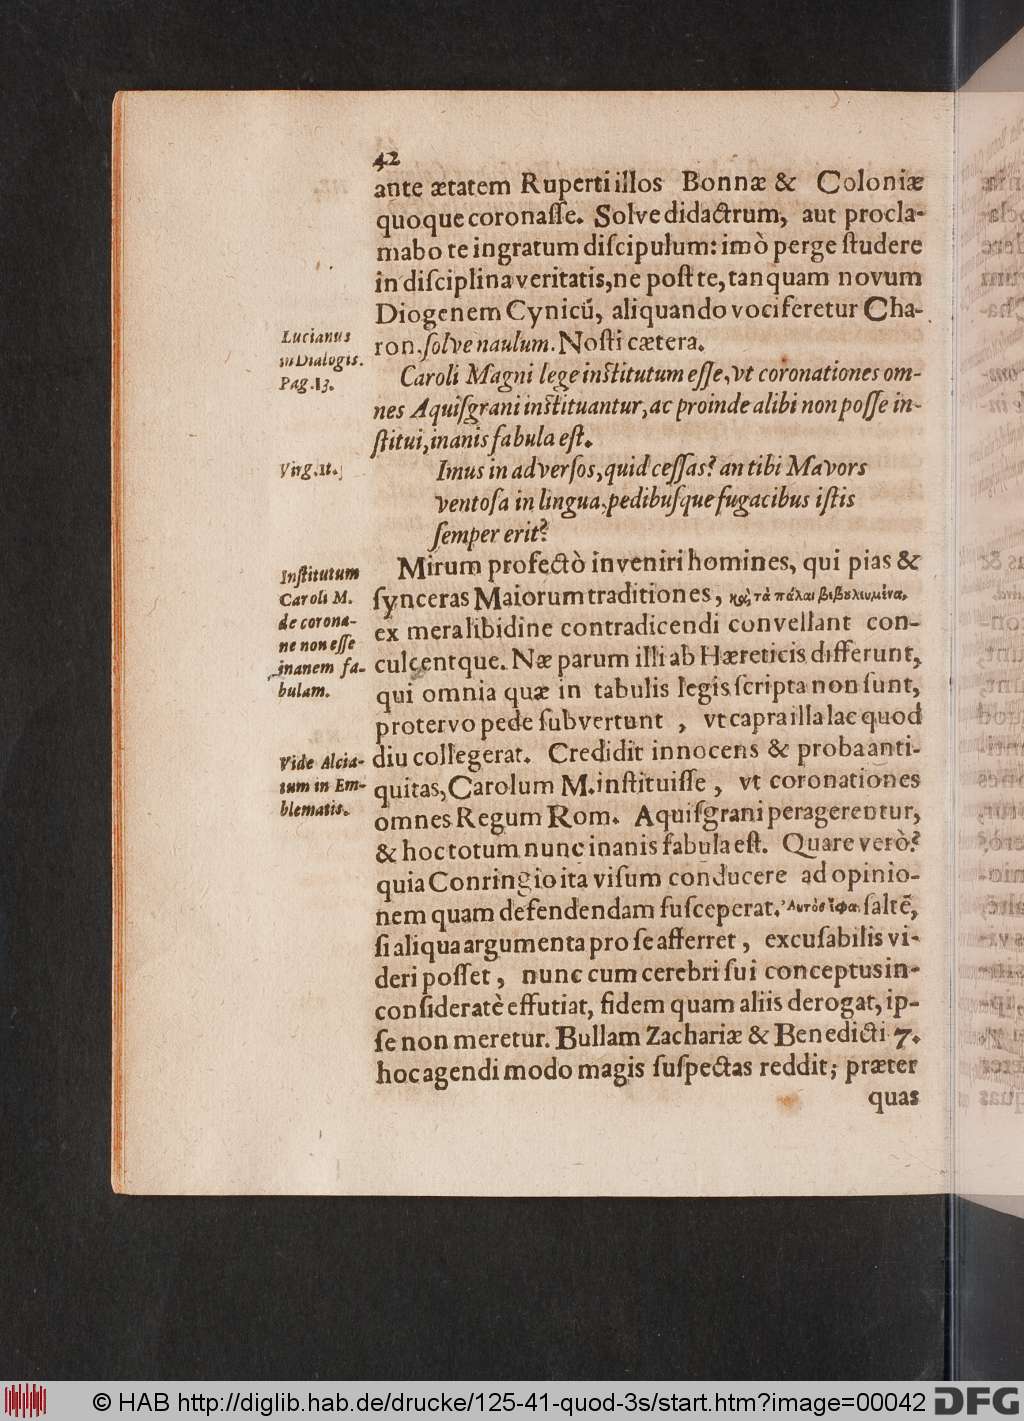 42
ante ætatem Ruperti illos Bonnæ & Coloniæ
quoque coronaſſe. Solve didactrum, aut procla-
mabo te ingratum diſcipulum: imò perge ſtudere
in diſciplina veritatis, ne poſt te, tanquam novum
Diogenem Cynicū, aliquando vociferetur Cha-
ron, ſolve naulum. Noſti cætera.
Lucianus
in Dialogis.
Pag. 13.
Caroli Magni lege inſtitutum eſſe, vt coronationes om-
nes Aquiſgrani inſtituantur, ac proinde alibi non poſſe in-
ſtitui, inanis fabula eſt.
Virg. 11.
Imus in adverſos, quid ceſſas? an tibi Mavors
ventoſa in lingua, pedibuſque fugacibus iſtis
ſemper erit?
Inſtitutum
Caroli M.
de corona-
ne non eſſe
inanem fa-
bulam.
Mirum profectò inveniri homines, qui pias &
ſynceras Maiorum traditiones, καὶ τὰ πάλαι βεβουλευμένα,
ex mera libidine contradicendi convellant con-
culcentque. Næ parum illi ab Hæreticis differunt,
qui omnia quæ in tabulis legis ſcripta non ſunt,
protervo pede ſubvertunt , vt capra illa lac quod
diu collegerat. Credidit innocens & proba anti-
Vide Alcia-
tum in Em-
blematis.
quitas, Carolum M. inſtituiſſe , vt coronationes
omnes Regum Rom. Aquiſgrani peragerentur,
& hoc totum nunc inanis fabula eſt. Quare verò?
quia Conringio ita viſum conducere ad opinio-
nem quam defendendam ſuſceperat. Αυτὸς ἔφα ſaltē,
ſi aliqua argumenta pro ſe afferret , excuſabilis vi-
deri poſſet , nunc cum cerebri ſui conceptus in-
conſideratè effutiat, fidem quam aliis derogat, ip-
ſe non meretur. Bullam Zachariæ & Benedicti 7.
hoc agendi modo magis ſuſpectas reddit; præter
quas
© HAB http://diglib.hab.de/drucke/125-41-quod-3s/start.htm?image=00042
DFG